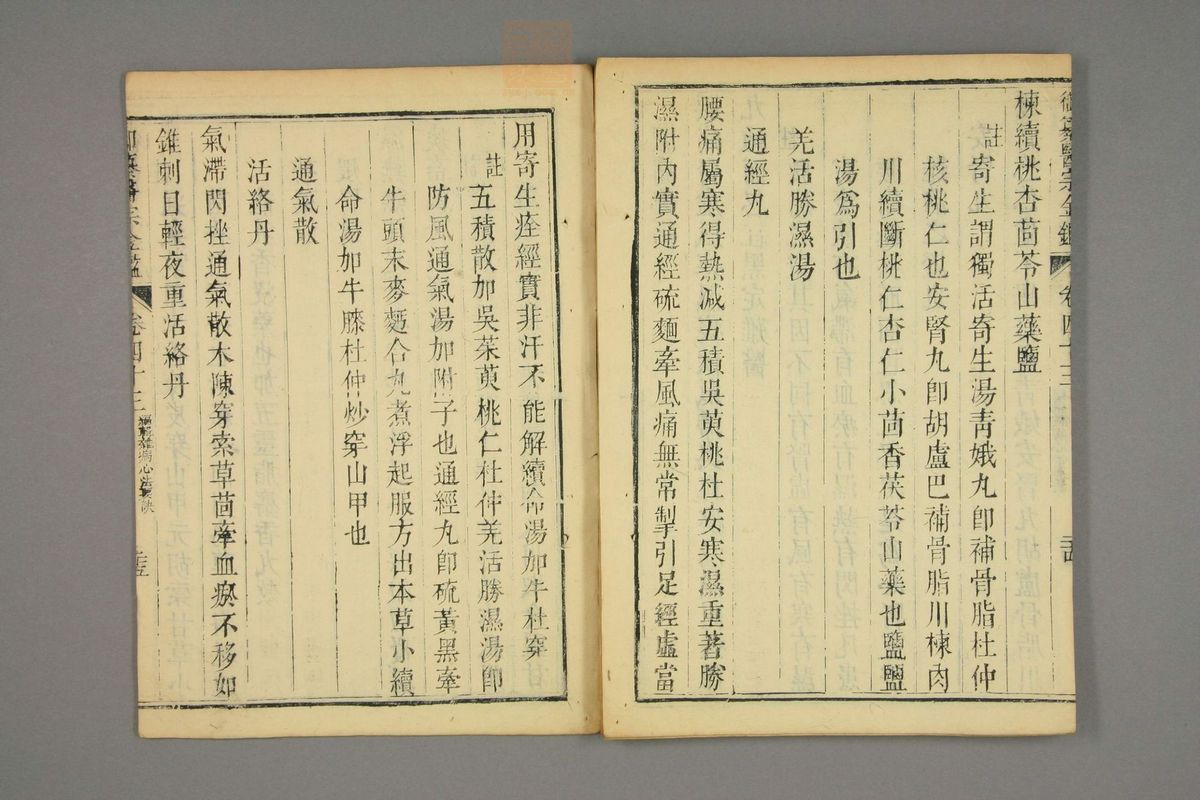 御纂醫宗金鑑 卷四十三
楝續桃杏茴苓山藥鹽
註寄生謂獨活寄生湯靑娥丸卽補骨脂杜仲
核桃仁也安腎丸卽胡盧巴補骨脂川楝肉
川續斷桃仁杏仁小茴香茯苓山藥也鹽鹽
湯爲引也
羌活勝濕湯
通經丸
腰痛屬寒得熱減五積吳萸桃杜安寒濕重著勝
濕附內實通經硫麵牽風痛無常掣引足經虛當
用寄生痊經實非汗不能解續命湯加牛杜穿
註五積散加吳茱萸桃仁杜仲羌活勝濕湯卽
防風通氣湯加附子也通經丸卽硫黃黑牽
牛頭末麥麵合丸煮浮起服方出本草小續
命湯加牛膝杜仲炒穿山甲也
通氣散
活絡丹
氣滯閃挫通氣散木陳穿索草茴牽血瘀不移如
錐刺日輕夜重活絡丹
御纂醫宗金鑑 卷四十三 編輯雜病心法要訣